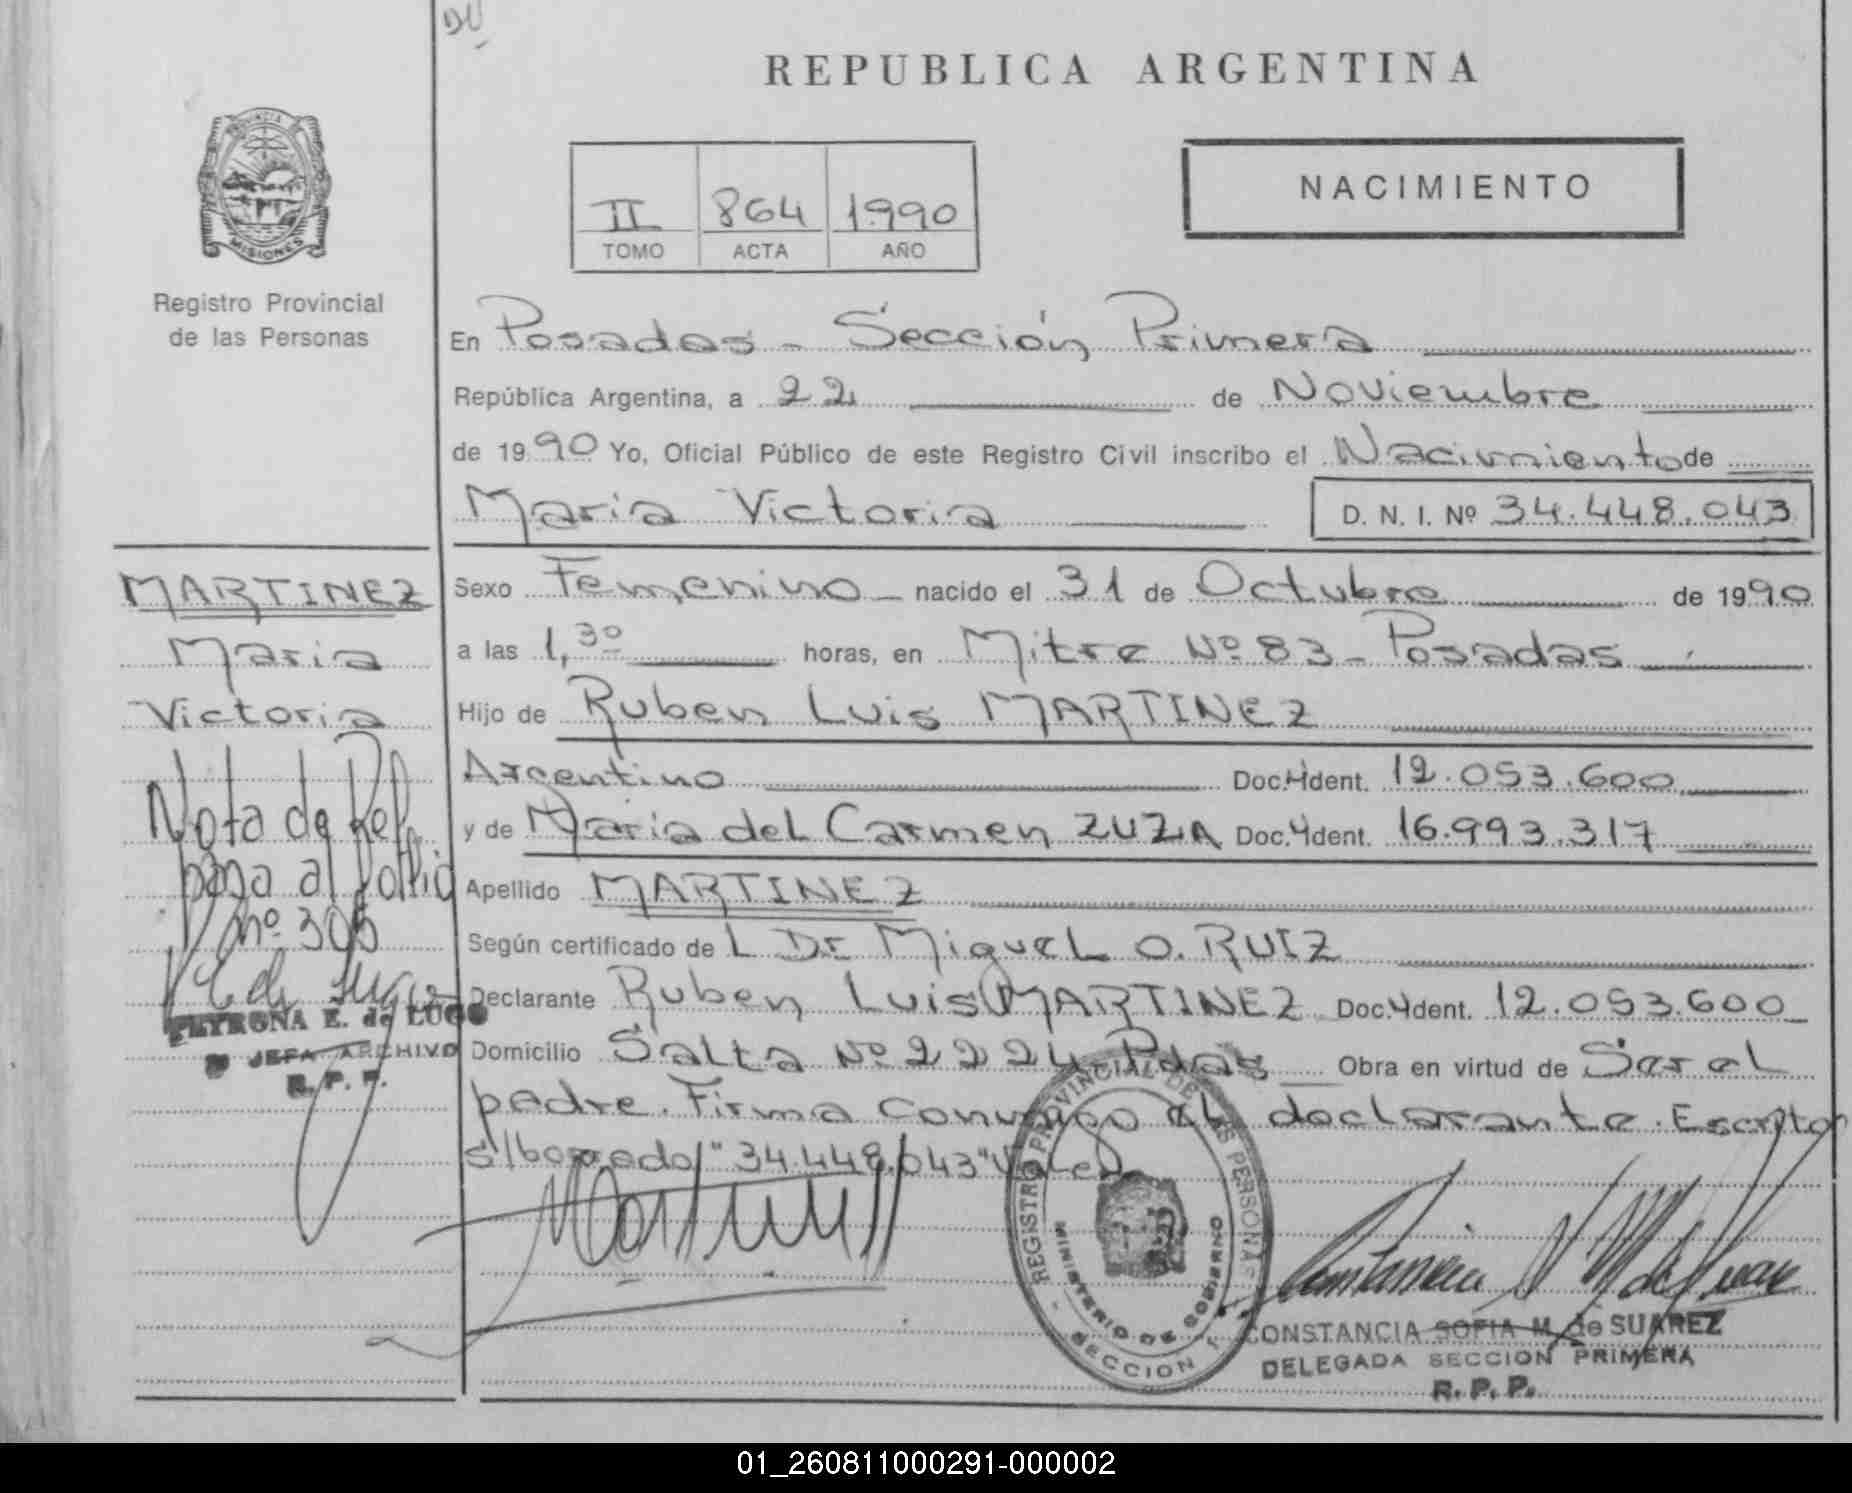 DU
REPUBLICA ARGENTINA
PROVINCIA
MISIONES
Registro Provincial
de las Personas
II 864 1.990
TOMO ACTA AÑO
NACIMIENTO
En Posadas - Sección Primera
República Argentina, a 22 de Noviembre
de 1990 Yo, Oficial Público de este Registro Civil inscribo el Nacimiento de
Maria Victoria D. N. I. Nº 34.448.043
MARTINEZ
Maria
Victoria
Nota de Ref.
pasa al follio
nº 305
PEYRONA E. de LUGO
JEFA ARCHIVO
R. P. P.
Sexo Femenino - nacido el 31 de Octubre de 1990
a las 1,30 horas, en Mitre Nº 83 - Posadas
Hijo de Ruben Luis MARTINEZ
Argentino Doc. Ident. 12.053.600
y de Maria del Carmen ZUZA Doc. Ident. 16.993.317
Apellido MARTINEZ
Según certificado de L Dr Miguel O. RUIZ
Declarante Ruben Luis MARTINEZ Doc. Ident. 12.053.600
Domicilio Salta Nº 2224 Pdas Obra en virtud de Ser el
padre. Firma conmigo el declarante. Escrito
s/borrado "34.448.043" Vale
REGISTRO PROVINCIAL DE LAS PERSONAS
MINISTERIO DE GOBIERNO
SECCION 1
CONSTANCIA SOFIA M. de SUAREZ
DELEGADA SECCION PRIMERA
R. P. P.
01_260811000291-000002